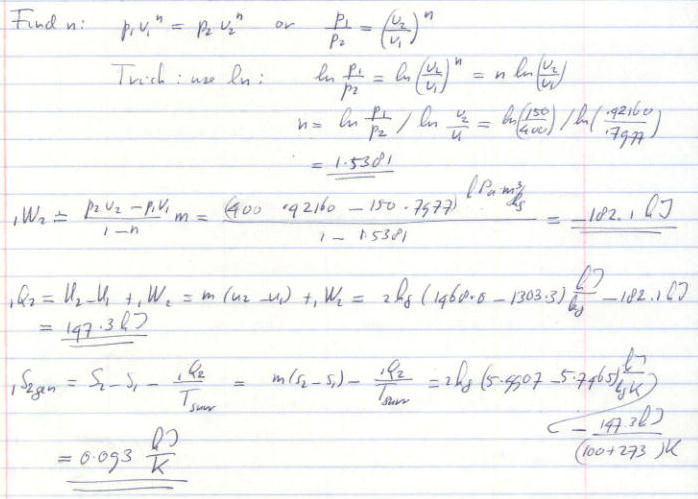 Find n: p₁v₁ⁿ = p₂v₂ⁿ or p₁/p₂ = (v₂/v₁)ⁿ
Trick: use ln: ln p₁/p₂ = ln(v₂/v₁)ⁿ = n ln(v₂/v₁)
n = ln p₁/p₂ / ln v₂/v₁ = ln(150/400) / ln(.42160/.7977)
= 1.5381
₁W₂ = (p₂v₂ - p₁v₁)/(1-n) m = (400 · .42160 - 150 · .7977) kPa·m³/kg / (1 - 1.5381) = -182.1 kJ
₁Q₂ = U₂-U₁ + ₁W₂ = m(u₂-u₁) + ₁W₂ = 2kg(1468.0 - 1303.3) kJ/kg - 182.1 kJ
= 147.3 kJ
₁S₂gen = S₂-S₁ - ₁Q₂/Tsurr = m(s₂-s₁) - ₁Q₂/Tsurr = 2kg(5.9907 - 5.7465) kJ/kgK
- 147.3kJ/(100+273)K
= 0.093 kJ/K